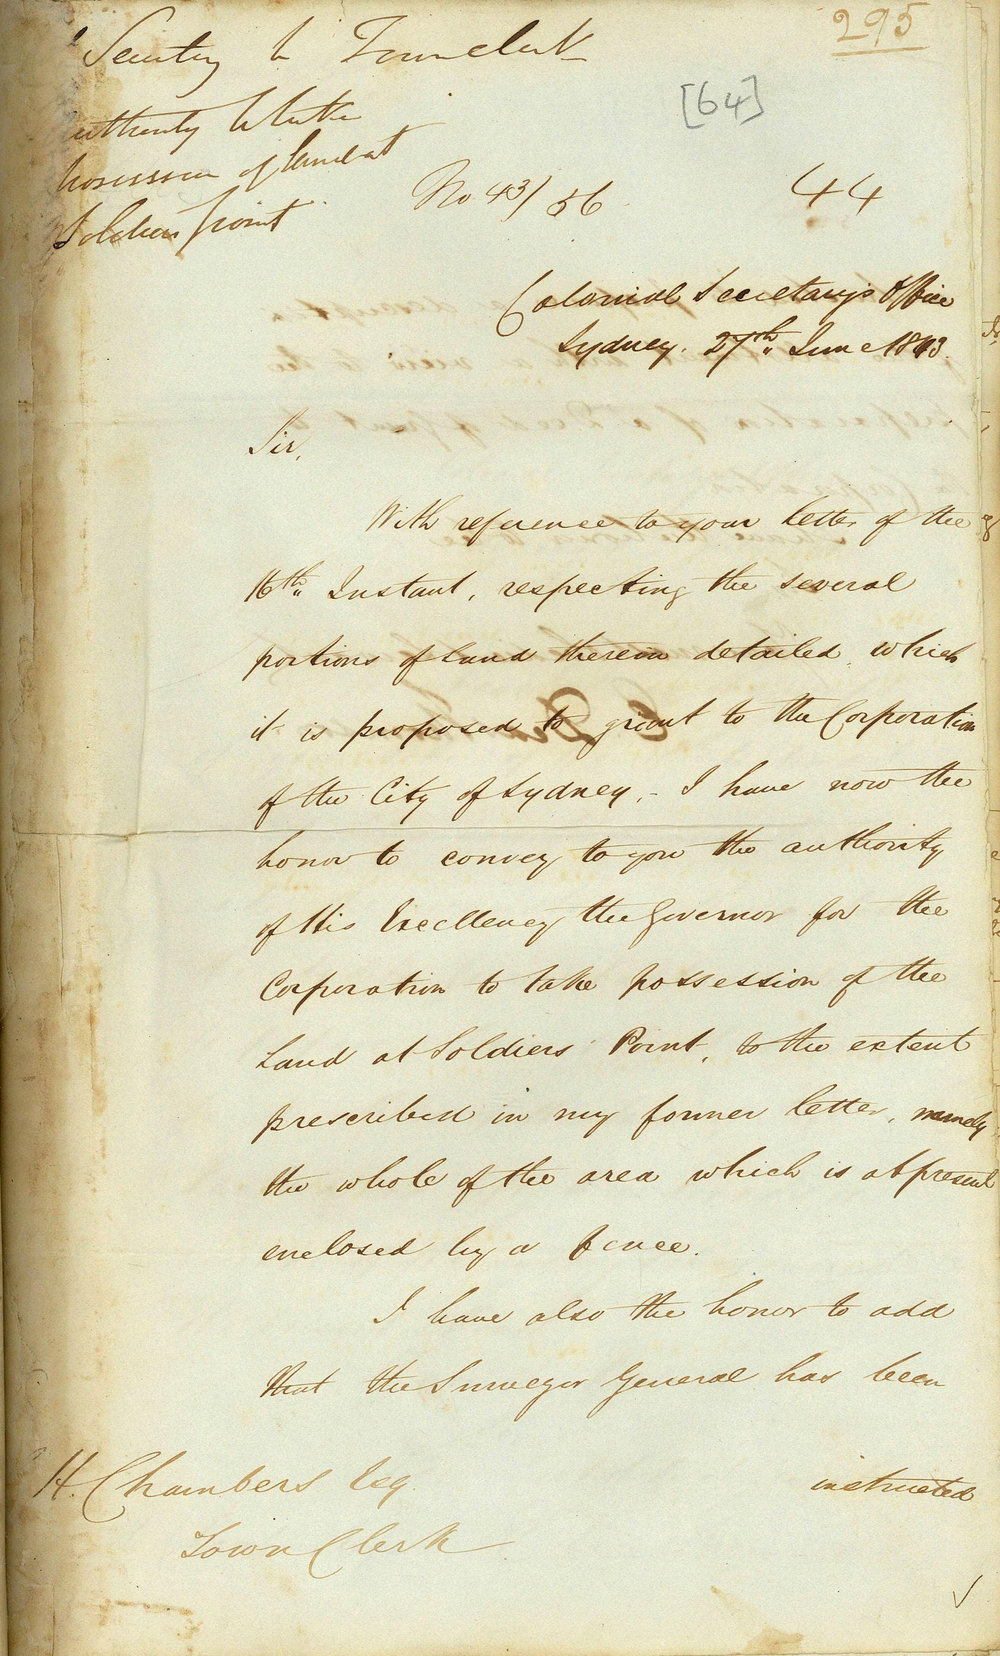 295
[64]
Secretary to Town Clerk
authority to take
possession of land at
Soldiers point
No 43/56
44
Colonial Secretary's Office
Sydney. 27th June 1843.
Sir,
With reference to your letter of the
16th Instant, respecting the several
portions of land therein detailed which
it is proposed to grant to the Corporation
of the City of Sydney, - I have now the
honor to convey to you the authority
of His Excellency the Governor for the
Corporation to take possession of the
Land at Soldiers Point, to the extent
prescribed in my former letter, namely
the whole of the area which is at present
enclosed by a fence.
I have also the honor to add
that the Surveyor General has been
instructed
H. Chambers Esq
Town Clerk